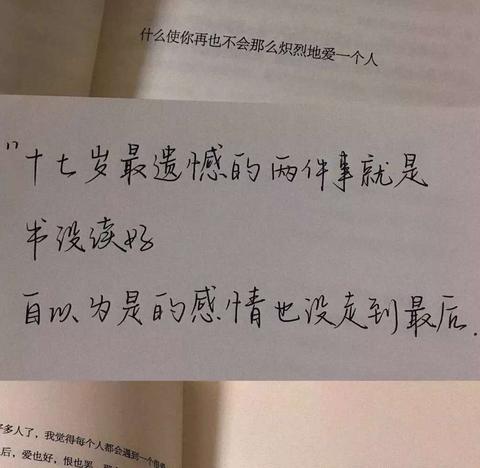 什么使你再也不会那么炽烈地爱一个人
"十七岁最遗憾的两件事就是
书没读好
自以为是的感情也没走到最后.
好多人了，我觉得每个人都会遇到一个
后，爱也好，恨也罢，